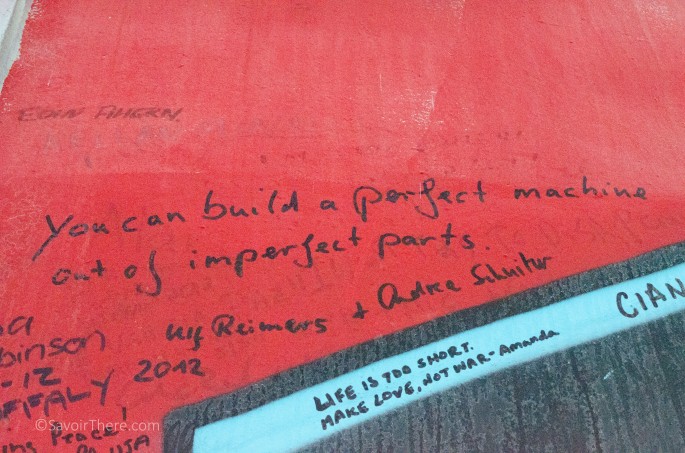 EOIN AHERN
You can build a perfect machine
out of imperfect parts.
Ulf Reimers + Andrea Schuiter
binson
-12
2012
CIAN
LIFE IS TOO SHORT.
MAKE LOVE, NOT WAR - Amanda
Peace!
USA
©SavoirThere.com